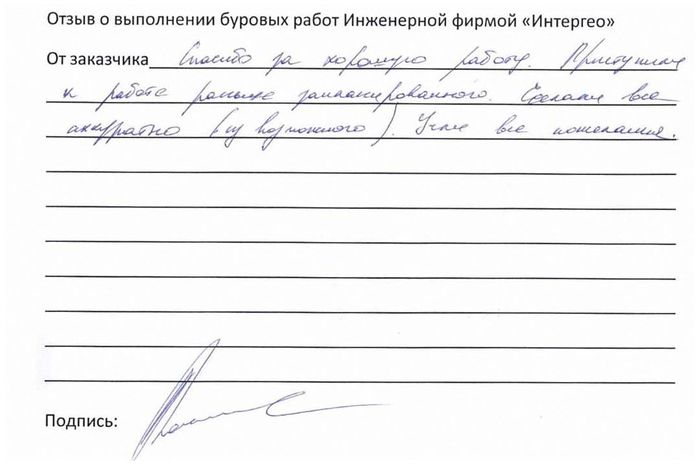 Отзыв о выполнении буровых работ Инженерной фирмой «Интергео»
От заказчика Спасибо за хорошую работу. Приступили
к работе раньше запланированного. Сделали все
аккуратно (из возможного). Учли все пожелания.
Подпись: